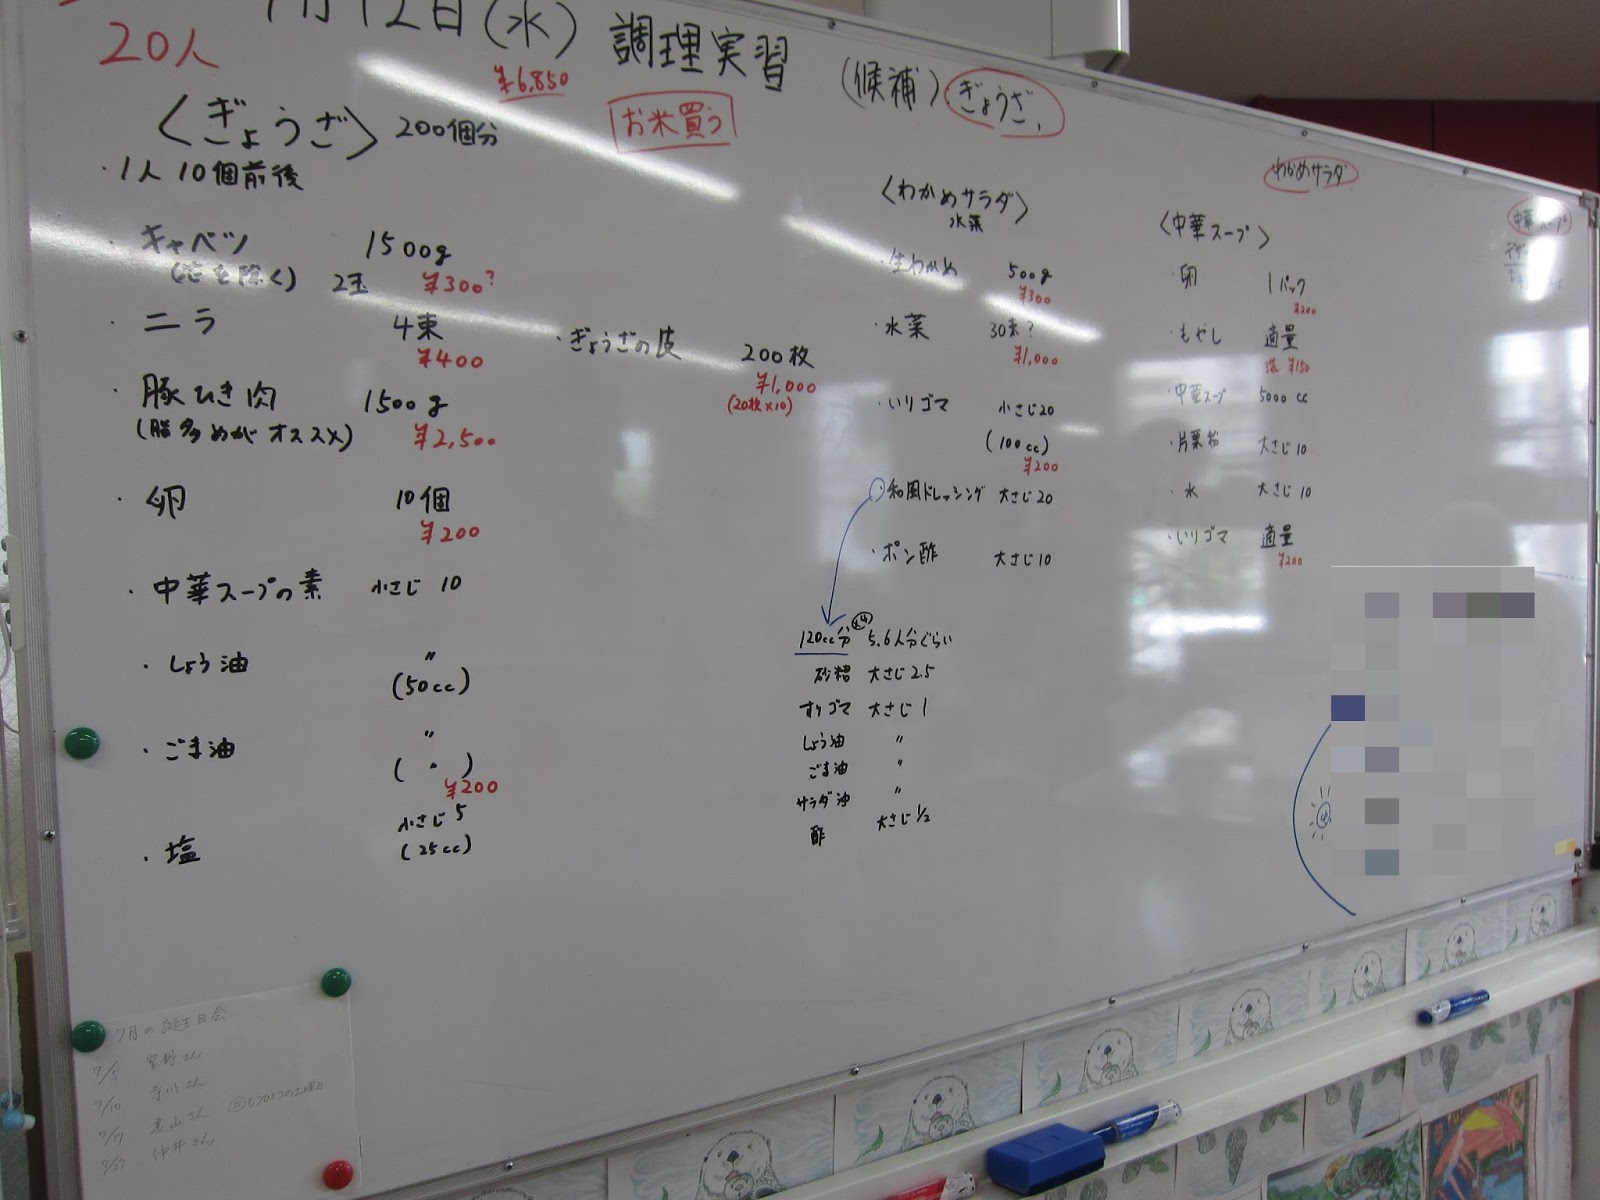 月12日(水) 調理実習 (候補) ぎょうざ、
20人
¥6,850
お米買う
〈ぎょうざ〉 200個分
・1人10個前後
・キャベツ 1500g
(芯を除く) 2玉 ¥300?
・ニラ 4束
¥400
・豚ひき肉 1500g
(脂多めがオススメ) ¥2,500
・卵 10個
¥200
・中華スープの素 小さじ 10
・しょう油 〃
(50cc)
・ごま油 〃
( 〃 )
¥200
・塩 小さじ 5
(25cc)
・ぎょうざの皮 200枚
¥1,000
(20枚×10)
〈わかめサラダ〉
水菜
・生わかめ 500g
¥300
・水菜 30束?
¥1,000
・いりゴマ 小さじ20
(100cc)
¥200
・和風ドレッシング 大さじ20
・ポン酢 大さじ10
120cc分 ×4 5.6人分ぐらい
砂糖 大さじ2.5
すりゴマ 大さじ1
しょう油 〃
ごま油 〃
サラダ油 〃
酢 大さじ1/2
わかめサラダ
〈中華スープ〉
・卵 1パック
¥200
・もやし 適量
¥150
・中華スープ 5000cc
・片栗粉 大さじ10
・水 大さじ10
・いりゴマ 適量
¥200
中華スープ
7月の誕生日会
7/5 さん
7/10 寺川さん
7/17 さん
7/27 仲井さん